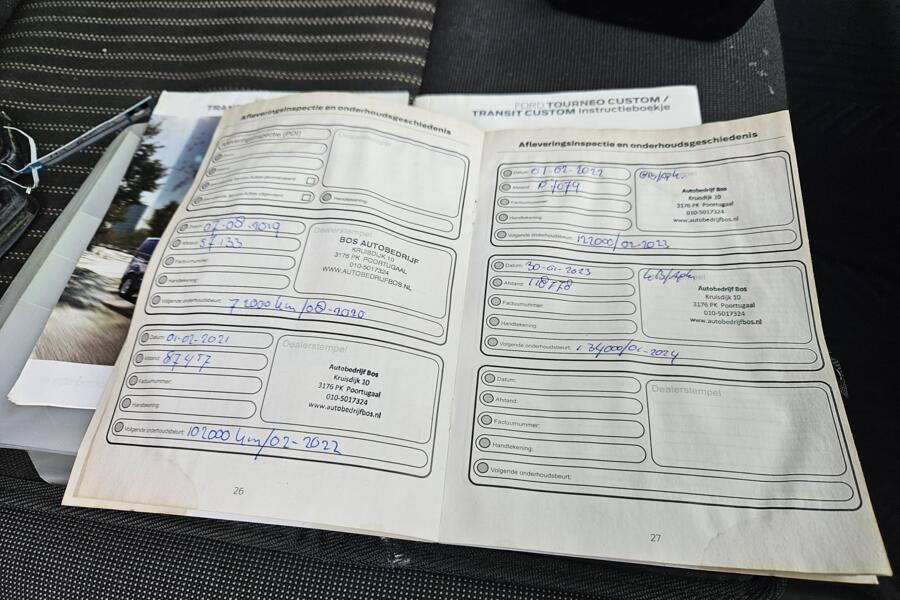 FORD TOURNEO CUSTOM /
TRANSIT CUSTOM Instructieboekje
Afleveringsinspectie en onderhoudsgeschiedenis
Afleveringsinspectie (PDI)
Dealerstempel
Handtekening:
Datum: 07-08-2019
Afstand: 57133
Factuurnummer:
Handtekening:
Volgende onderhoudsbeurt: 72000 km/08-2020
Dealerstempel
BOS AUTOBEDRIJF
KRUISDIJK 10
3176 PK POORTUGAAL
010-5017324
WWW.AUTOBEDRIJFBOS.NL
Datum: 01-02-2021
Afstand: 87457
Factuurnummer:
Handtekening:
Volgende onderhoudsbeurt: 102000 km/02-2022
Dealerstempel
Autobedrijf Bos
Kruisdijk 10
3176 PK Poortugaal
010-5017324
www.autobedrijfbos.nl
26
Afleveringsinspectie en onderhoudsgeschiedenis
Datum: 01-02-2022
Afstand:
Factuurnummer:
Handtekening:
Volgende onderhoudsbeurt: 122000/02-2023
Autobedrijf Bos
Kruisdijk 10
3176 PK Poortugaal
010-5017324
www.autobedrijfbos.nl
Datum: 30-01-2023
Afstand: 118778
Factuurnummer:
Handtekening:
Volgende onderhoudsbeurt: 134000/01-2024
Autobedrijf Bos
Kruisdijk 10
3176 PK Poortugaal
010-5017324
www.autobedrijfbos.nl
Datum:
Afstand:
Factuurnummer:
Handtekening:
Volgende onderhoudsbeurt:
Dealerstempel
27